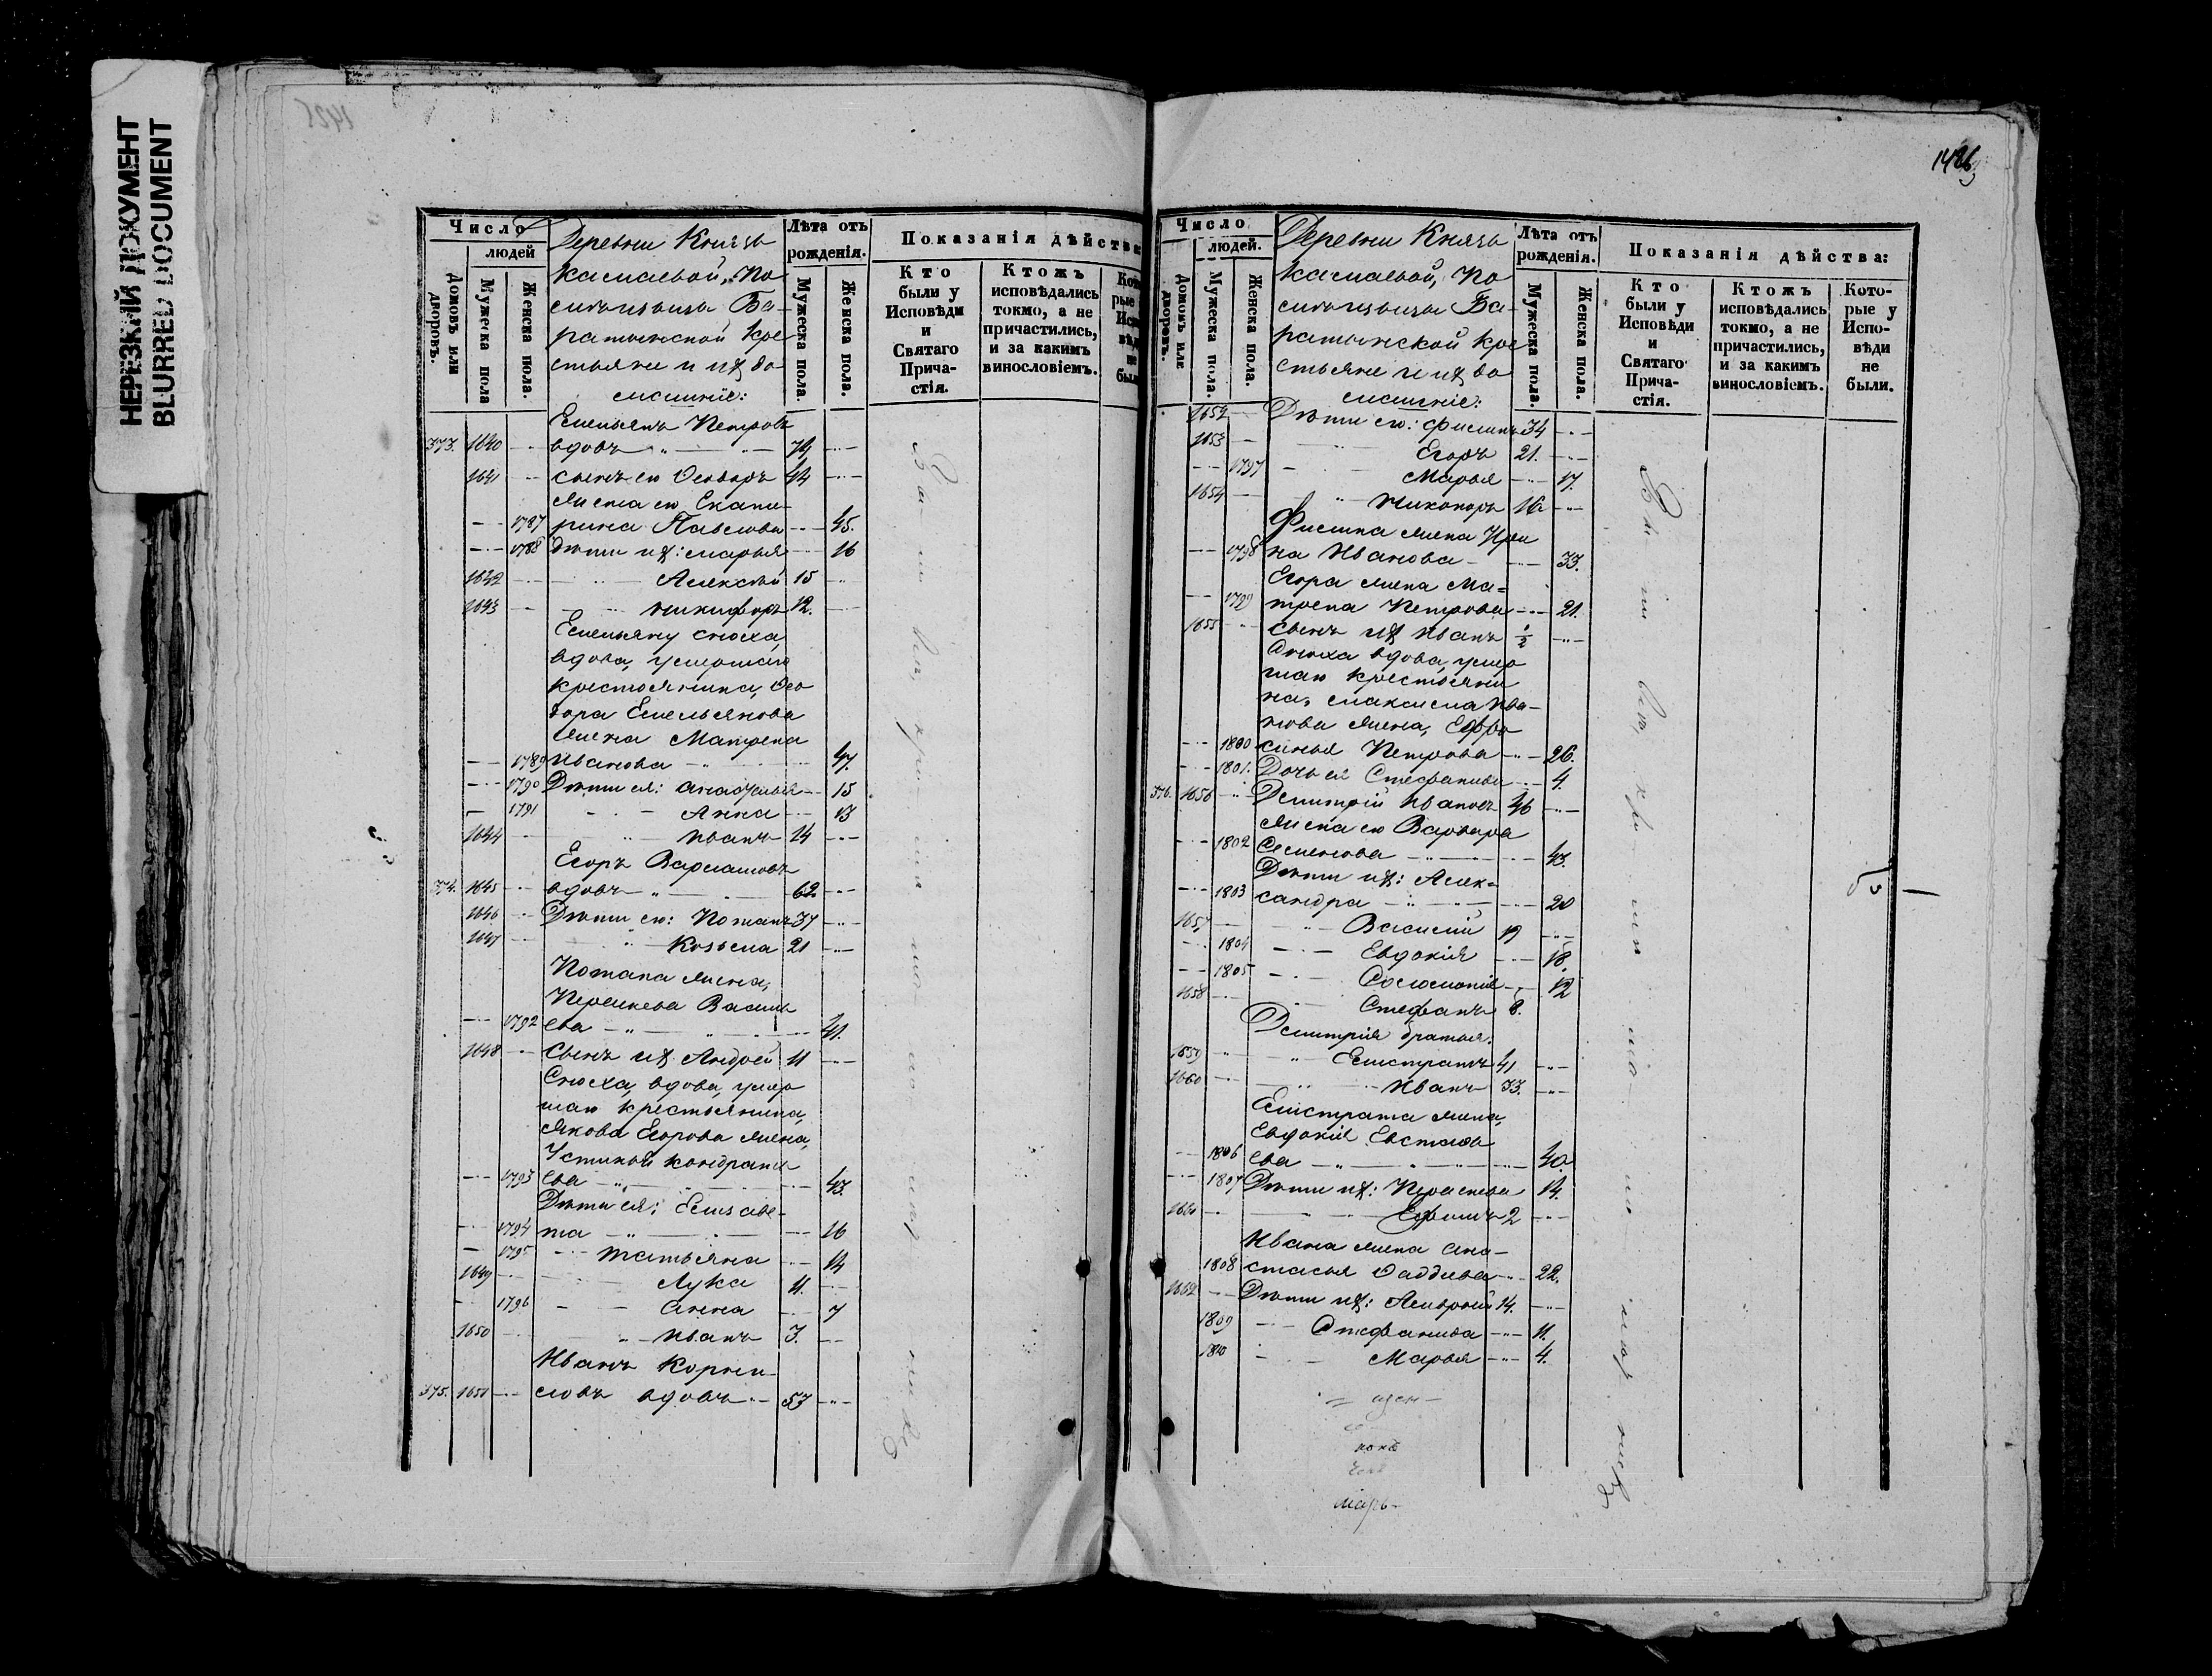 НЕРЕЗКИЙ ДОКУМЕНТ
BLURRED DOCUMENT
1425
Число
людей
Домовъ или дворовъ.
Мужеска пола
Женска пола.
Деревни Князь
касмаевой, по
ситозвища Ба-
ратынской кре
стьяне и ихъ до-
машніе:
Лѣта отъ
рожденія.
Мужеска пола.
Женска пола.
Показанія дѣйства
Кто
были у
Исповѣди
и
Святаго
Прича-
стія.
Ктожъ
исповѣдались
токмо, а не
причастились,
и за какимъ
винословіемъ.
Емельянъ Петровъ
373. 1640 вдовъ 74
1641 сынъ его Ѳеодоръ 44
Жена его Екате-
1787 рина Павлова 45.
1788 Дѣти ихъ: Марья 16
1642 Алексѣй 15
1643 Никифоръ 12.
Емельяну сноха,
вдова, умершаго
крестьянина, Ѳео
дора Емельянова
жена Матрена
1789 Иванова 47.
1790 Дѣти ея: Анастасія 15
1791 Анна 13
1644 Иванъ 14
Егоръ Варламовъ
374. 1645 вдовъ 62.
1646 Дѣти его: Потапъ 37
1647 Козьма 21
Потапа жена,
Прасковья Василь
1792 ева 41.
1648 Сынъ ихъ Андрей 11
Сноха, вдова, умер
шаго крестьянина,
Якова Егорова жена,
Устинья Кондрать
1793 ева 43.
Дѣти ея: Елизаве-
1794 та 16
1795 Татьяна 14
1649 Лука 11.
1796 Анна 7
1650 Иванъ 3.
Иванъ Корни-
375. 1651 ловъ вдовъ 53
1426
Число
людей.
Домовъ или дворовъ.
Мужеска пола.
Женска пола.
Деревни Князь
касмаевой, по
ситозвища Ба-
ратынской кре
стьяне и ихъ до
машніе:
Лѣта отъ
рожденія.
Мужеска пола.
Женска пола.
Показанія дѣйства:
Кто
были у
Исповѣди
и
Святаго
Прича-
стія.
Ктожъ
исповѣдались
токмо, а не
причастились,
и за какимъ
винословіемъ.
Кото-
рые у
Испо-
вѣди
не
были.
1652 Дѣти его: Филипъ 34
1653 Егоръ 21.
1797 Марья 17.
1654 Никоноръ 16
Филипа жена Ири
1798 на Иванова 33.
Егора жена Ма-
1799 трена Петрова 21.
1655 сынъ ихъ Иванъ 1/2
Сноха вдова, умер
шаго крестьяни
на, Максима Ива-
нова жена, Ефро
1800 синья Петрова 26.
1801. Дочь ея Стефанида 4.
376. 1656 Димитрій Ивановъ 46
Жена его Варвара
1802 Семенова 43.
Дѣти ихъ: Алек-
1803 сандра 20
1657 Василій 19
1804 Евдокія 18.
1805 Соломонія 12
1658 Стефанъ 8.
Димитрія братья:
1659 Елистратъ 41
1660 Иванъ 33.
Елистрата жена,
Евдокія Евстафь
1806 ева 40.
1807 Дѣти ихъ: Прасковья 14.
1661 Ефимъ 2
Ивана жена Ана-
1808 стасья Ѳаддѣева 22.
1662 Дѣти ихъ: 14.
1809 Стефанида 11.
1810 Марья 4.